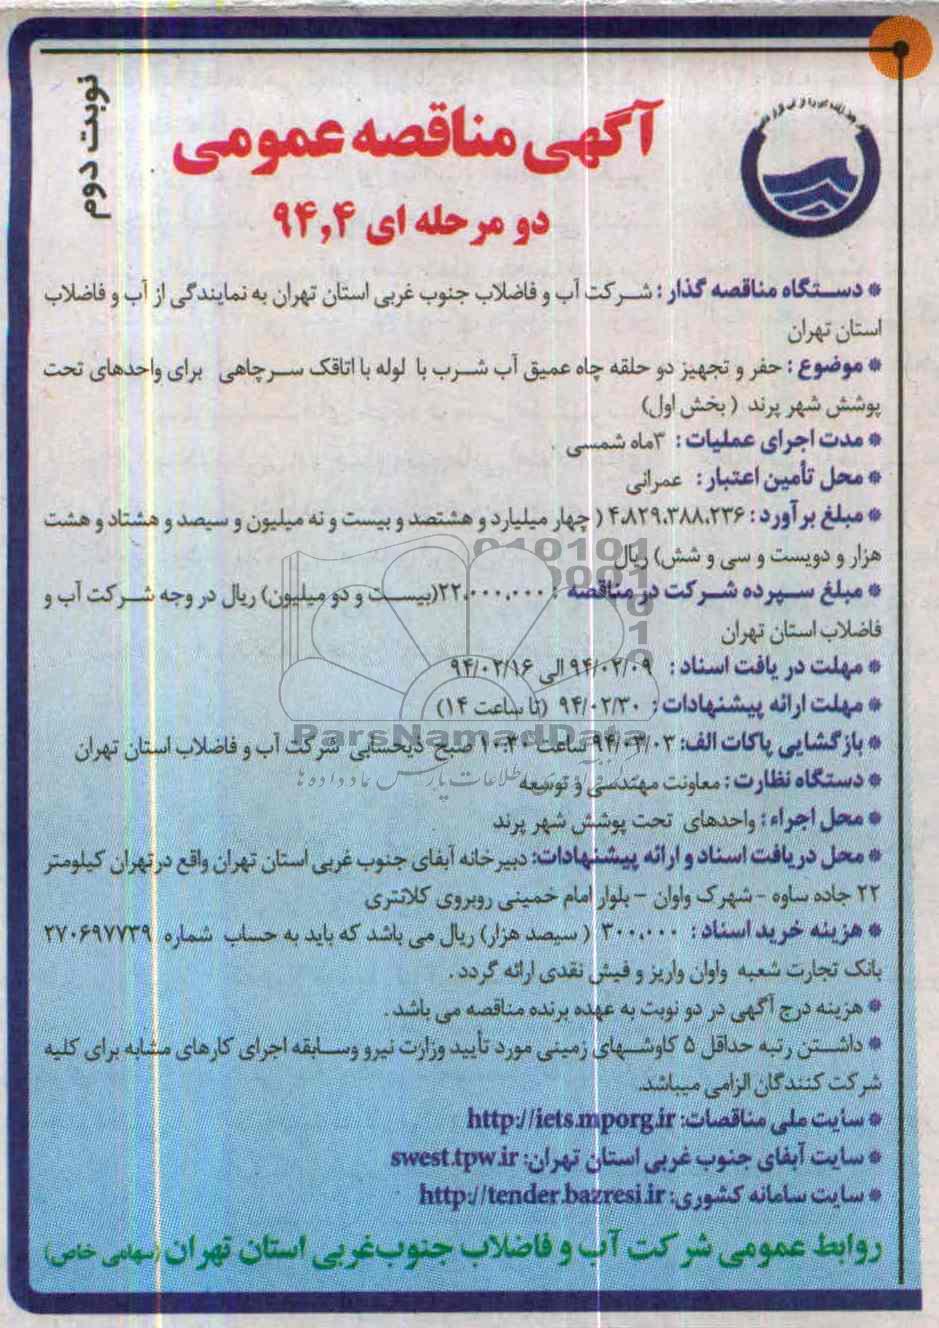 نوبت دوم
آگهی مناقصه عمومی
دو مرحله ای ۹۴,۴
* دستگاه مناقصه گذار : شرکت آب و فاضلاب جنوب غربی استان تهران به نمایندگی از آب و فاضلاب
استان تهران
* موضوع : حفر و تجهیز دو حلقه چاه عمیق آب شرب با لوله با اتاقک سرچاهی برای واحدهای تحت
پوشش شهر پرند ( بخش اول)
* مدت اجرای عملیات : ۳ماه شمسی .
* محل تأمین اعتبار : عمرانی
* مبلغ برآورد : ۴،۸۲۹،۳۸۸،۲۳۶ ( چهار میلیارد و هشتصد و بیست و نه میلیون و سیصد و هشتاد و هشت
هزار و دویست و سی و شش) ریال
* مبلغ سپرده شرکت در مناقصه : ۲۲،۰۰۰،۰۰۰(بیست و دو میلیون) ریال در وجه شرکت آب و
فاضلاب استان تهران
* مهلت دریافت اسناد : ۹۴/۰۲/۰۹ الی ۹۴/۰۲/۱۶
* مهلت ارائه پیشنهادات : ۹۴/۰۲/۳۰ (تا ساعت ۱۴)
* بازگشایی پاکات الف: ۹۴/۰۳/۰۳ ساعت ۱۰:۳۰ صبح ذیحسابی شرکت آب و فاضلاب استان تهران
ParsNamadData
* دستگاه نظارت : معاونت مهندسی و توسعه
* محل اجراء : واحدهای تحت پوشش شهر پرند
* محل دریافت اسناد و ارائه پیشنهادات: دبیرخانه آبفای جنوب غربی استان تهران واقع درتهران کیلومتر
۲۲ جاده ساوه - شهرک واوان - بلوار امام خمینی روبروی کلانتری
* هزینه خرید اسناد : ۳۰۰،۰۰۰ ( سیصد هزار) ریال می باشد که باید به حساب شماره ۲۷۰۶۹۷۷۳۹
بانک تجارت شعبه واوان واریز و فیش نقدی ارائه گردد .
* هزینه درج آگهی در دو نوبت به عهده برنده مناقصه می باشد .
* داشتن رتبه حداقل ۵ کاوشهای زمینی مورد تأیید وزارت نیرو وسابقه اجرای کارهای مشابه برای کلیه
شرکت کنندگان الزامی میباشد.
* سایت ملی مناقصات: http://iets.mporg.ir
* سایت آبفای جنوب غربی استان تهران: swest.tpw.ir
* سایت سامانه کشوری: http://tender.bazresi.ir
روابط عمومی شرکت آب و فاضلاب جنوب‌غربی استان تهران (سهامی خاص)